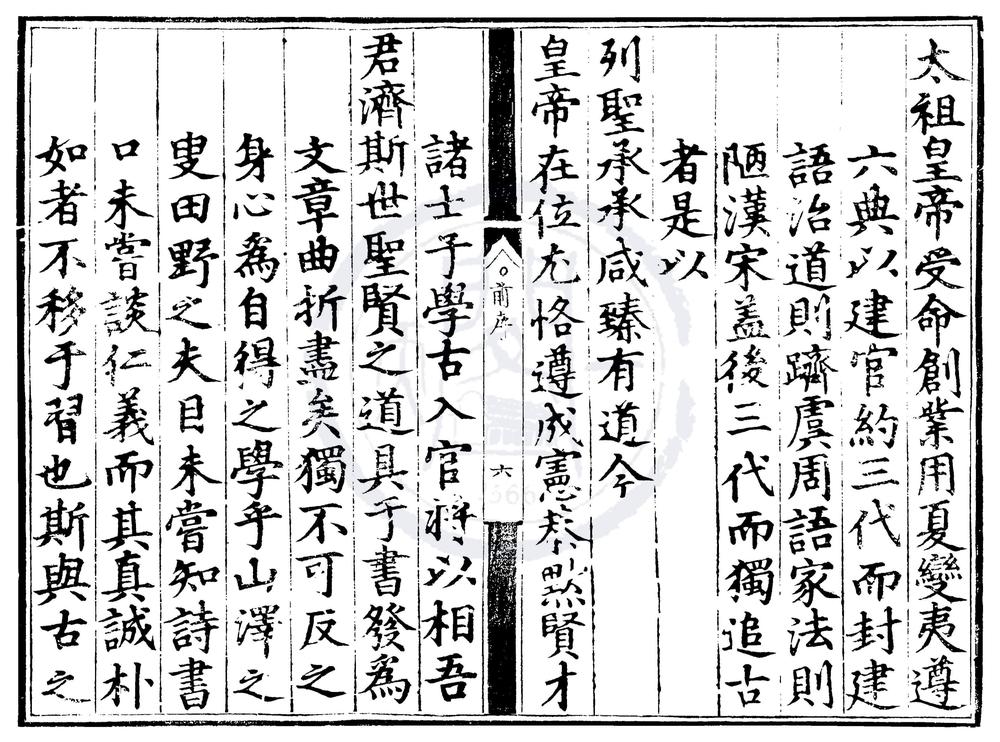 太祖皇帝受命創業用夏變夷遵
六典以建官約三代而封建
語治道則躋虞周語家法則
陋漢宋蓋後三代而獨追古
者是以
列聖承承咸臻有道今
皇帝在位尤恪遵成憲恭默賢才
前序
六
諸士子學古入官將以相吾
君濟斯世聖賢之道具于書發爲
文章曲折盡矣獨不可反之
身心爲自得之學乎山澤之
叟田野之夫目未嘗知詩書
口未嘗談仁義而其真誠朴
如者不移于習也斯與古之